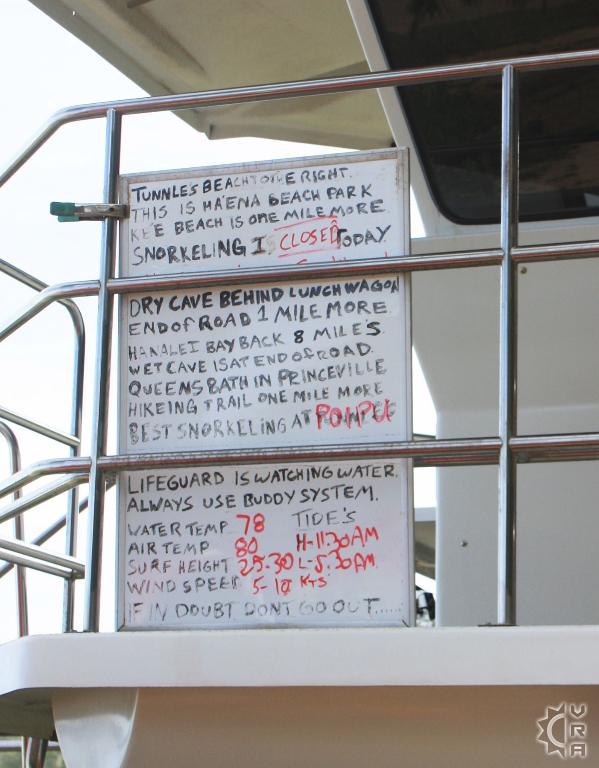 TUNNLES BEACH ONE RIGHT.
THIS IS HA'ENA BEACH PARK
KE'E BEACH IS ONE MILE MORE
SNORKELING IS CLOSED TODAY
DRY CAVE BEHIND LUNCH WAGON
END OF ROAD 1 MILE MORE.
HANALEI BAY BACK 8 MILE'S
WET CAVE IS AT END OF ROAD.
QUEENS BATH IN PRINCEVILLE
HIKEING TRAIL ONE MILE MORE
BEST SNORKELING AT POIPU
LIFEGUARD IS WATCHING WATER.
ALWAYS USE BUDDY SYSTEM.
WATER TEMP 78 TIDE'S
AIR TEMP 80 H-11:30AM
SURF HEIGHT 25-30 L-5:30AM
WIND SPEED 5-10 KTS
IF IN DOUBT DONT GO OUT......
VRA